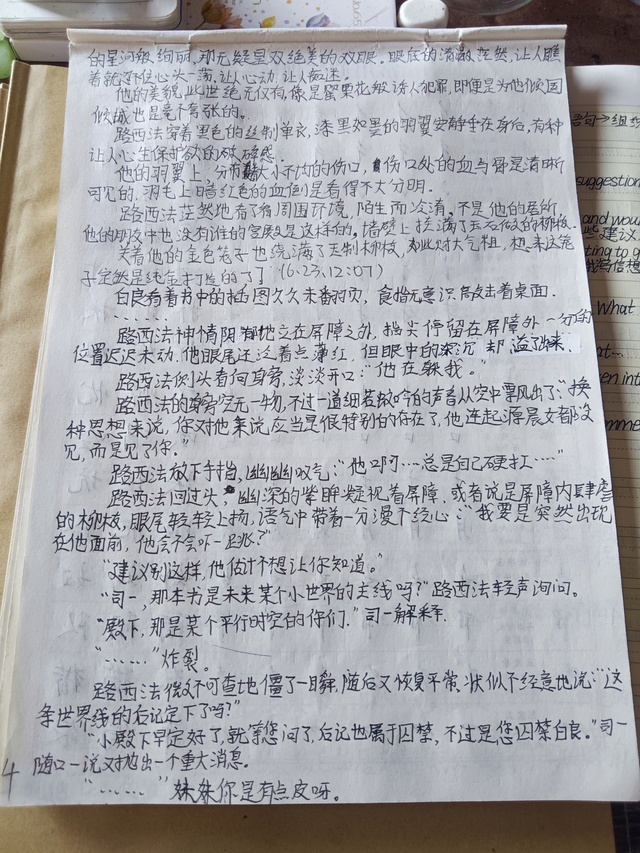 的星河般绚丽，那无疑是双绝美的双眼，眼底的清澈茫然，让人瞧
着就不住心头一荡，让人心动，让人痴迷。
他的美貌，此世绝无仅有，像是罂粟花般诱人犯罪，即便是为他倾国
倾城也是毫不夸张的。
路西法穿着黑色的丝制单衣，漆黑如墨的羽翼安静坐在身后，有种
让人心生保护欲的破碎感。
他的羽翼上，分布着大小不均的伤口，伤口处的血与骨是清晰
可见的，羽毛上暗红色的血倒是看得不大分明。
路西法茫然地看了看周围环境，陌生而冷清，不是他的居所，
他的朋友中也没有谁的宫殿是这样的，墙壁上挂满了玉石做的柳枝，
关着他的金色笼子也绕满了玉制柳枝，如此财大气粗，想来这笼
子定然是纯金打造的了」(6.23.12:07)
白良看着书中的插图久久未翻页，食指无意识敲击着桌面.
……
路西法神情阴郁地立在屏障之外，指尖停留在屏障外一分的
位置迟迟未动.他眼尾还泛着点薄红，但眼中的深沉却溢了出来.
路西法侧头看向身旁，淡淡开口："他在躲我。"
路西法的身旁空无一物，不过一道细若蚊吟的声音从空中飘风出了："换
种思想来说，你对他来说应当是很特别的存在了，他连起源晨女都没
见，而是见了你。"
路西法放下手指，幽幽叹气："他啊……总是自己硬扛……"
路西法回过头，幽深的紫眸凝视着屏障，或者说是屏障内肆虐
的柳枝，眼尾轻轻上扬，语气中带着一分漫不经心："我要是突然出现
在他面前，他会不会吓一跳？"
"建议别这样，他估计不想让你知道。"
"司一，那本书是未来某个小世界的主线吗？"路西法轻声询问。
"殿下，那是某个平行时空的你们."司一解释.
"……"炸裂。
路西法微不可查地僵了一瞬，随后又恢复平常，状似不经意地说："这
条世界线的后记定下了吗？"
"小殿下早定好了，就等您问了，后记也属于囚禁，不过是您囚禁白良。"司一
随口一说又抛出一个重大消息.
"……"妹妹你是有点皮呀。
4
语句→组织
suggestion
and would
些建议
What